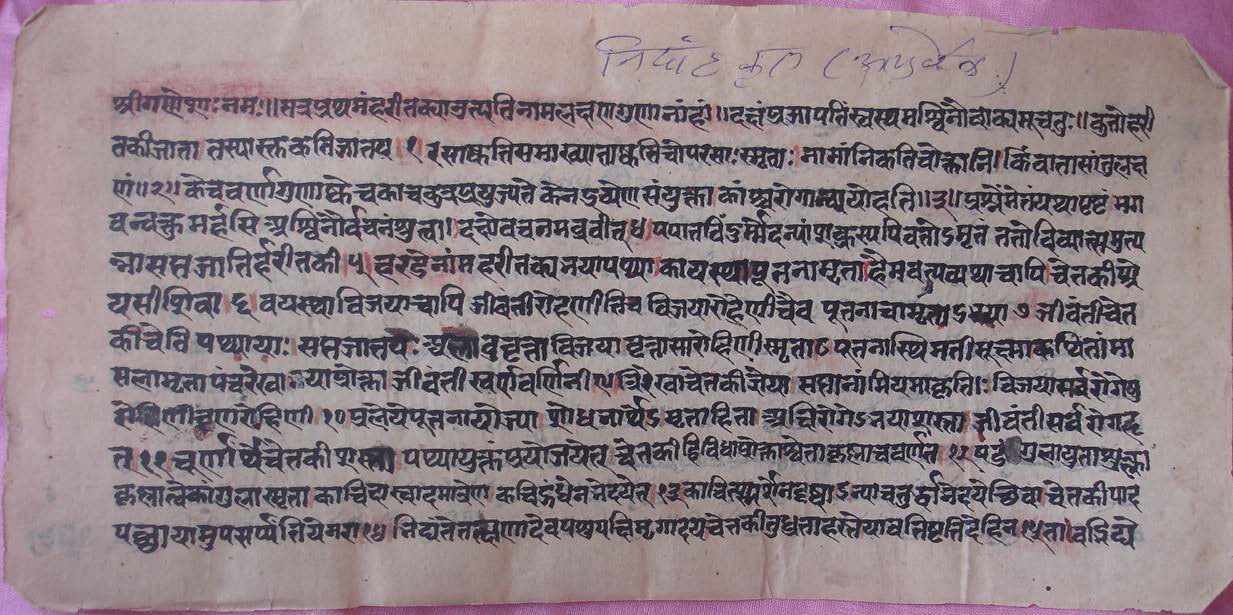 निघांट कृत (आयुर्वेद)
श्रीगणेशाय नमः॥ प्रथमं हरीतक्या उत्पत्तिनामलक्षणगुणानां ॥ दक्षं प्रजापतिं स्वस्थमश्विनौ वाक्यमूचतुः॥ कुतो हरी
तकी जाता तस्यास्तु कति जातयः १ रसाः कति समाख्याताः कति चोपरसाः स्मृताः नामानि कति चोक्तानि किं वा तासां तु लक्ष
णं॥२॥ के च वर्णा गुणाः के च का च कुत्र प्रयुज्यते केन द्रव्येण संयुक्ता कांश्च रोगान्व्यपोहति॥३॥ प्रश्नमेतं यथा पृष्टं भग
वन्वक्तुमर्हसि अश्विनोर्वचनं श्रुत्वा दक्षो वचनमब्रवीत् ४ पपात बिंदुर्मेदिन्यां शक्रस्य पिबतोऽमृतं ततो दिव्यात्समुत्प
न्ना सप्तजातिर्हरीतकी ५ हरीतक्यभया पथ्या कायस्था पूतनामृता हैमवत्यव्यथा चापि चेतकी श्रे
यसी शिवा ६ वयस्था विजया चापि जीवंती रोहिणीति च विजया रोहिणी चैव पूतना चामृताऽभया ७ जीवंती चेत
की चेति पथ्यायाः सप्त जातयः अलाबुवृत्ता विजया वृत्ता सा रोहिणी स्मृता ८ पूतनास्थिमती सूक्ष्मा कथिता मां
सलामृता पंचरेखाभया प्रोक्ता जीवंती स्वर्णवर्णिनी ९ त्रिरेखा चेतकी ज्ञेया सप्तानामियमाकृतिः विजया सर्वरोगेषु
रोहिणी व्रणरोहिणी १० प्रलेपे पूतना योज्या शोधनार्थेऽमृता हिता अक्षिरोगेऽभया शस्ता जीवंती सर्वरोगहृ
त् ११ चूर्णार्थे चेतकी शस्ता पथ्यायुक्तं प्रयोजयेत् चेतकी द्विविधा प्रोक्ता श्वेता कृष्णा च वर्णतः १२ षडंगुलायता शुक्ला
कृष्णा त्वेकांगुला स्मृता काचिदास्वादमात्रेण काचिद्गंधेन भेदयेत् १३ काचित्स्पर्शेन दृष्ट्याऽन्या चतुर्द्धा भेदयेच्छिवा चेतकीपाद
पच्छायामुपसर्प्पंति ये नराः १४ भिद्यंते तत्क्षणादेव पशुपक्षिमृगादयः चेतकी तु धृता हस्ते यावत्तिष्ठति देहिनः १५ तावद्भिद्ये